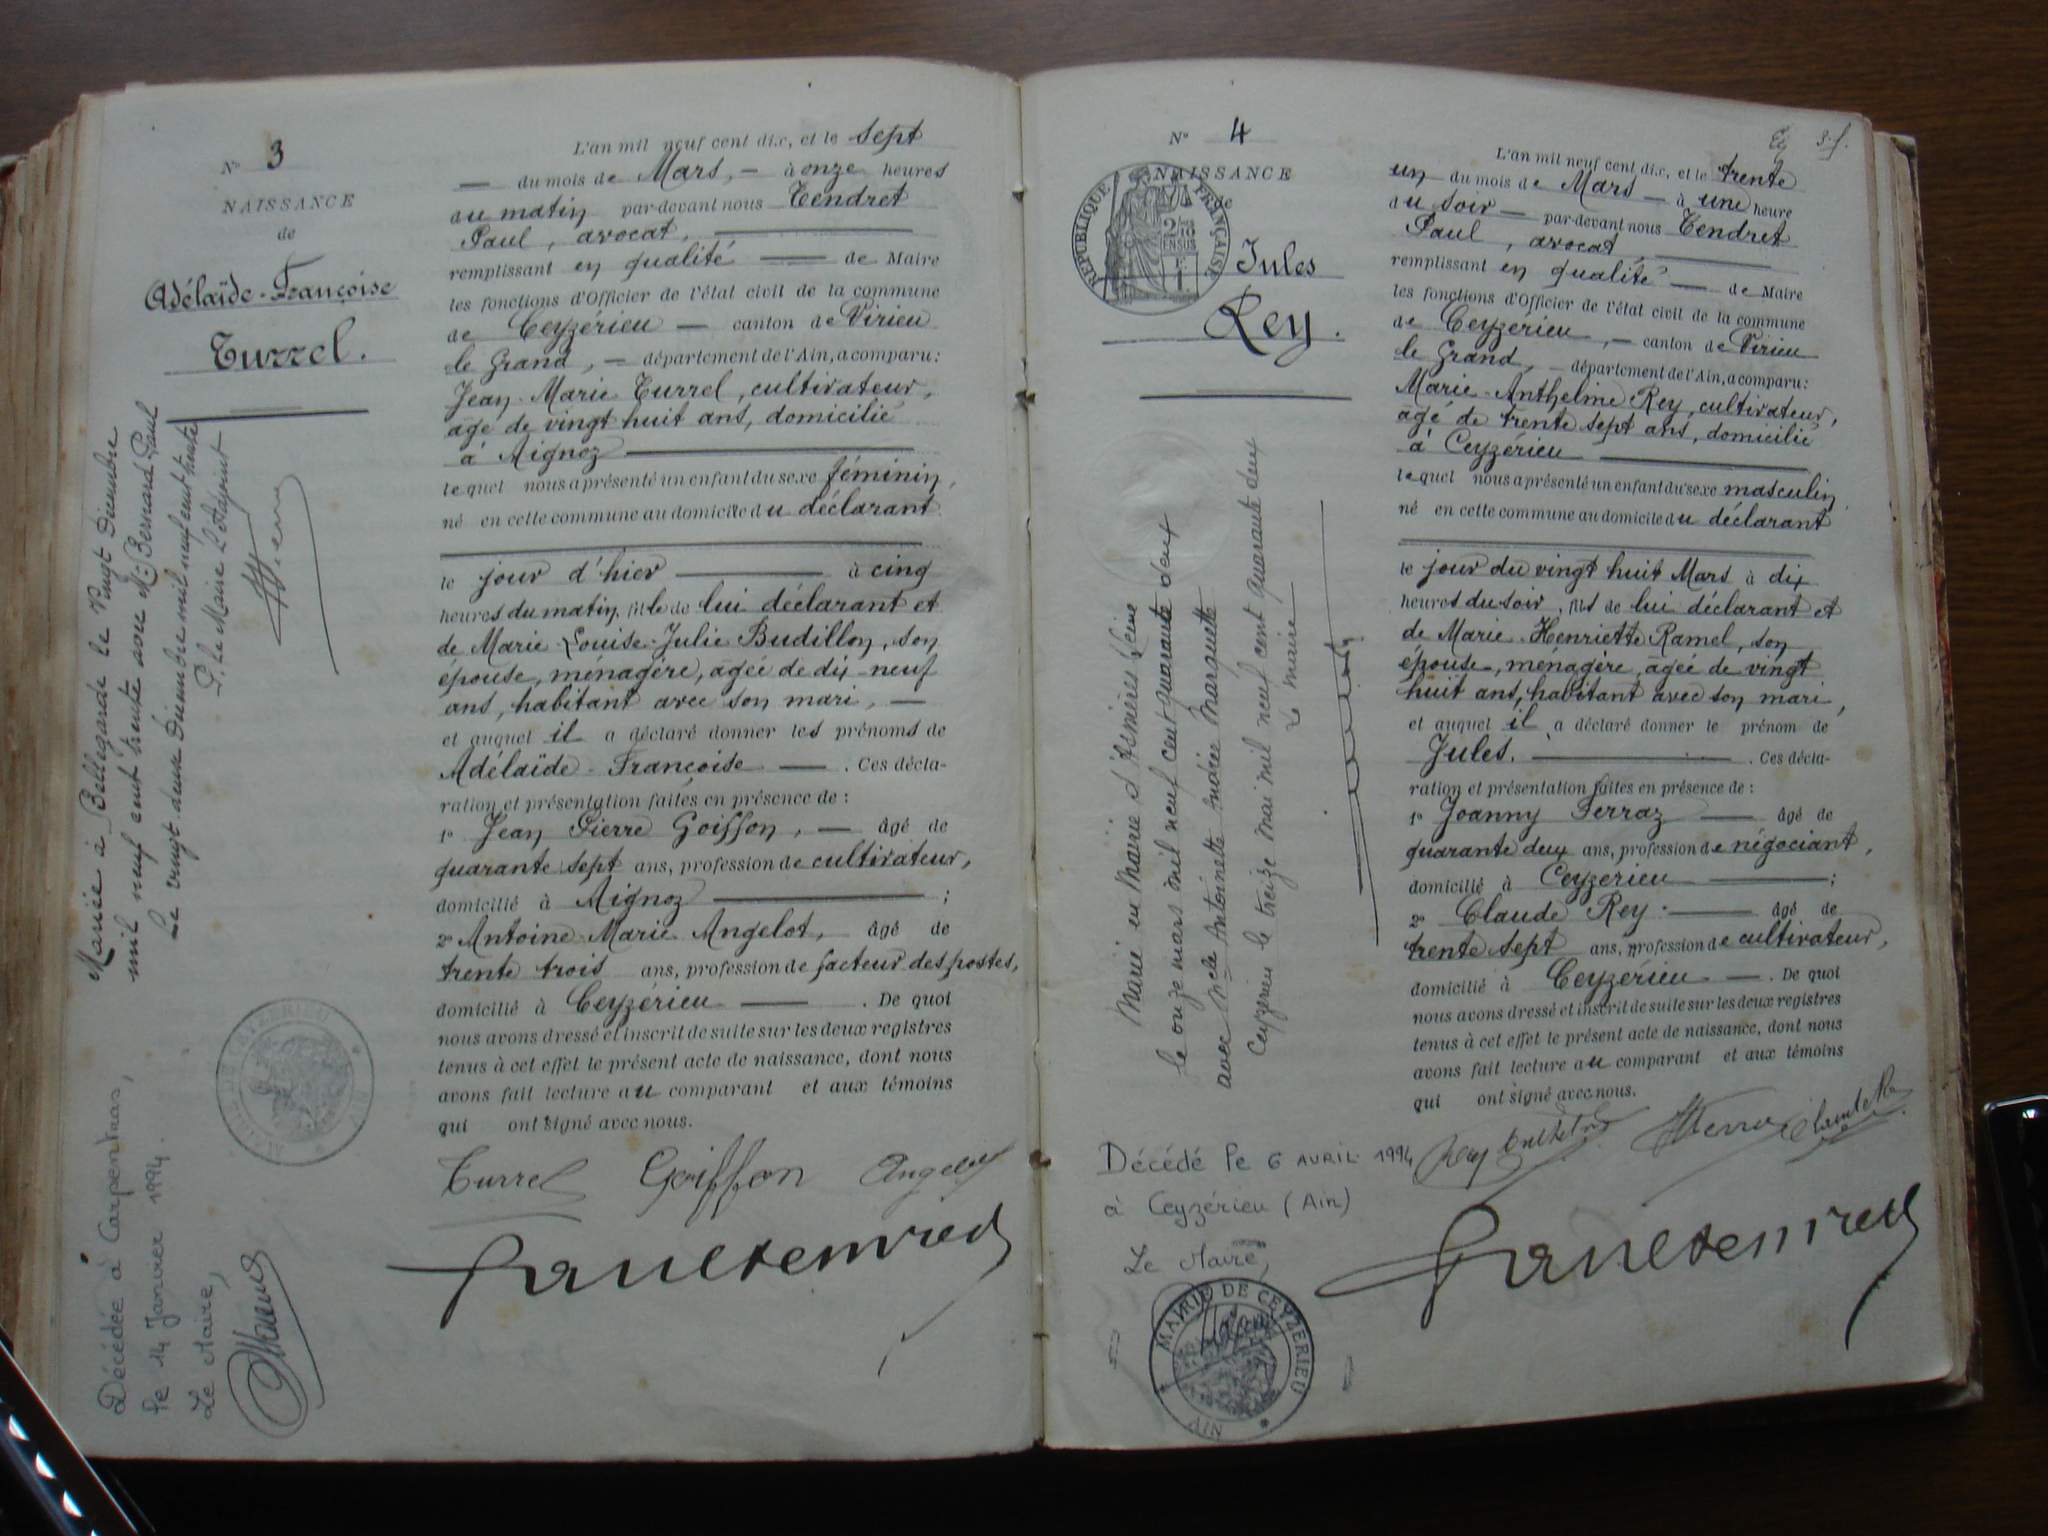 N° 3
NAISSANCE
de
Adélaïde-Françoise
Turrel.
L'an mil neuf cent dix, et le sept
— du mois de Mars, — à onze heures
du matin par-devant nous Tendret
Paul, avocat,
remplissant en qualité — de Maire
les fonctions d'Officier de l'état civil de la commune
de Ceyzérieu — canton de Virieu
le Grand, — département de l'Ain, a comparu :
Jean-Marie Turrel, cultivateur,
âgé de vingt huit ans, domicilié
à Aignoz
lequel nous a présenté un enfant du sexe féminin,
né en cette commune au domicile du déclarant
le jour d'hier — à cinq
heures du matin, fille de lui déclarant et
de Marie-Louise-Julie Budillon, son
épouse, ménagère, âgée de dix-neuf
ans, habitant avec son mari, —
et auquel il a déclaré donner les prénoms de
Adélaïde-Françoise — . Ces décla-
ration et présentation faites en présence de :
1° Jean Pierre Goiffon, — âgé de
quarante sept ans, profession de cultivateur,
domicilié à Aignoz — ;
2° Antoine Marie Angelot, âgé de
trente trois ans, profession de facteur des postes,
domicilié à Ceyzérieu — . De quoi
nous avons dressé et inscrit de suite sur les deux registres
tenus à cet effet le présent acte de naissance, dont nous
avons fait lecture au comparant et aux témoins
qui ont signé avec nous.
Turrel Goiffon Angelot
Paul Tendret
Mariée à Bellegarde le Vingt Décembre
mil neuf cent trente avec M. Bernard Paul
Le vingt-deux Décembre mil neuf cent trente
P. le Maire L'Adjoint
MAIRIE DE CEYZERIEU * AIN *
Décédée à Carpentras,
le 14 Janvier 1994.
Le Maire,
N° 4
NAISSANCE
de
REPUBLIQUE FRANÇAISE
Jules
Rey.
L'an mil neuf cent dix, et le trente
un du mois de Mars — à une heure
du soir — par-devant nous Tendret
Paul, avocat,
remplissant en qualité — de Maire
les fonctions d'Officier de l'état civil de la commune
de Ceyzérieu, — canton de Virieu
le Grand, — département de l'Ain, a comparu :
Marie-Anthelme Rey, cultivateur,
âgé de trente sept ans, domicilié
à Ceyzérieu
lequel nous a présenté un enfant du sexe masculin
né en cette commune au domicile du déclarant
le jour du vingt huit Mars à dix
heures du soir, fils de lui déclarant et
de Marie-Henriette Ramel, son
épouse, ménagère, âgée de vingt
huit ans, habitant avec son mari,
et auquel il a déclaré donner le prénom de
Jules. — . Ces décla-
ration et présentation faites en présence de :
1° Joanny Ferraz — âgé de
quarante deux ans, profession de négociant,
domicilié à Ceyzérieu — ;
2° Claude Rey — âgé de
trente sept ans, profession de cultivateur,
domicilié à Ceyzérieu — . De quoi
nous avons dressé et inscrit de suite sur les deux registres
tenus à cet effet le présent acte de naissance, dont nous
avons fait lecture au comparant et aux témoins
qui ont signé avec nous.
Rey Anthelme
Paul Tendret
Marié en Mairie d'Asnières Seine
le onze mars mil neuf cent quarante deux
avec Antoinette Andrée Marquette
Ceyzérieu le treize mai mil neuf cent quarante deux
Le maire
Décédé le 6 AVRIL 1994
à Ceyzérieu (Ain)
Le Maire,
MAIRIE DE CEYZERIEU * AIN *